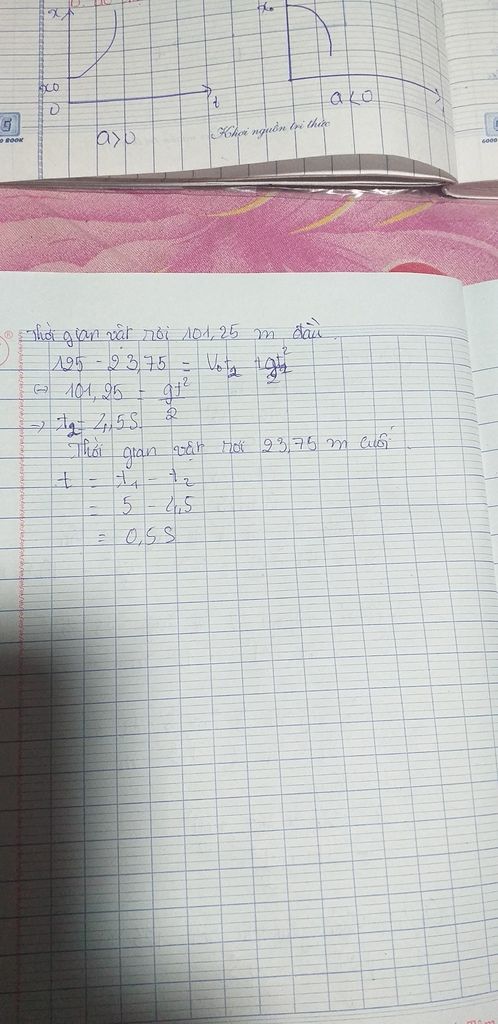 x
x₀
0
t
a>0
x₀
a<0
Khơi nguồn tri thức
G
GOOD
Thời gian vật rơi 101,25 m đầu.
125 - 23,75 = V₀t₂ + gt₂²/2
⇔ 101,25 = gt²/2
→ t₂ = 4,5S
Thời gian vật rơi 23,75 m cuối.
t = t₁ - t₂
= 5 - 4,5
= 0,5S